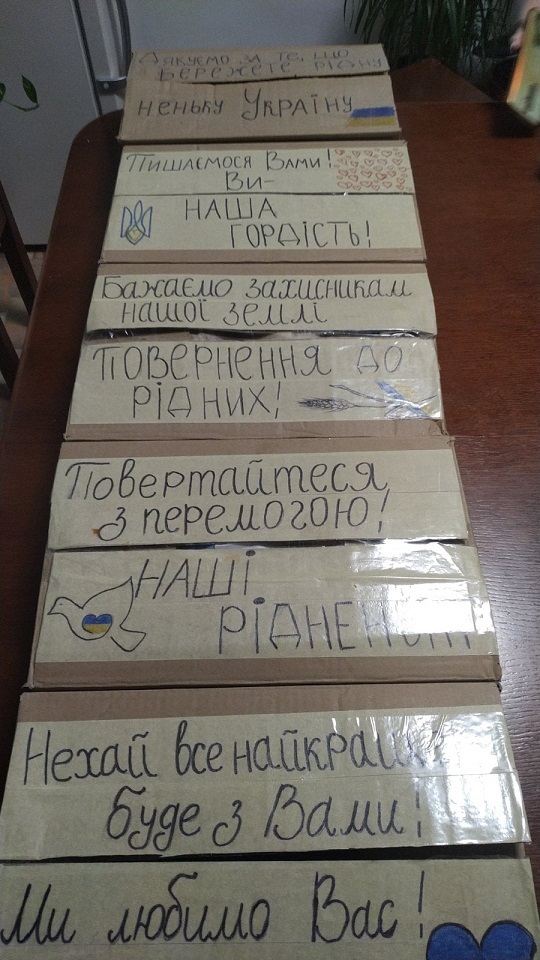 Дякуємо за те, що
бережете рідну
неньку Україну
Пишаємося Вами!
Ви-
наша
гордість!
Бажаємо захисникам
нашої землі
повернення до
рідних!
Повертайтеся
з перемогою!
Наші
Нехай все
буде з Вами!
Ми любимо Вас!